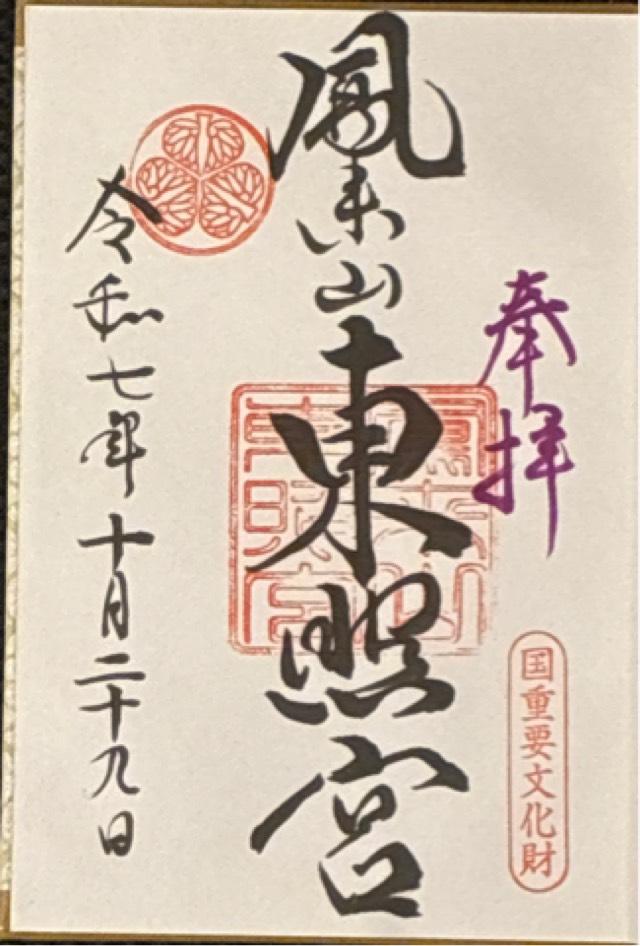 奉拝
国重要文化財
鳳来山東照宮
令和七年十月二十九日